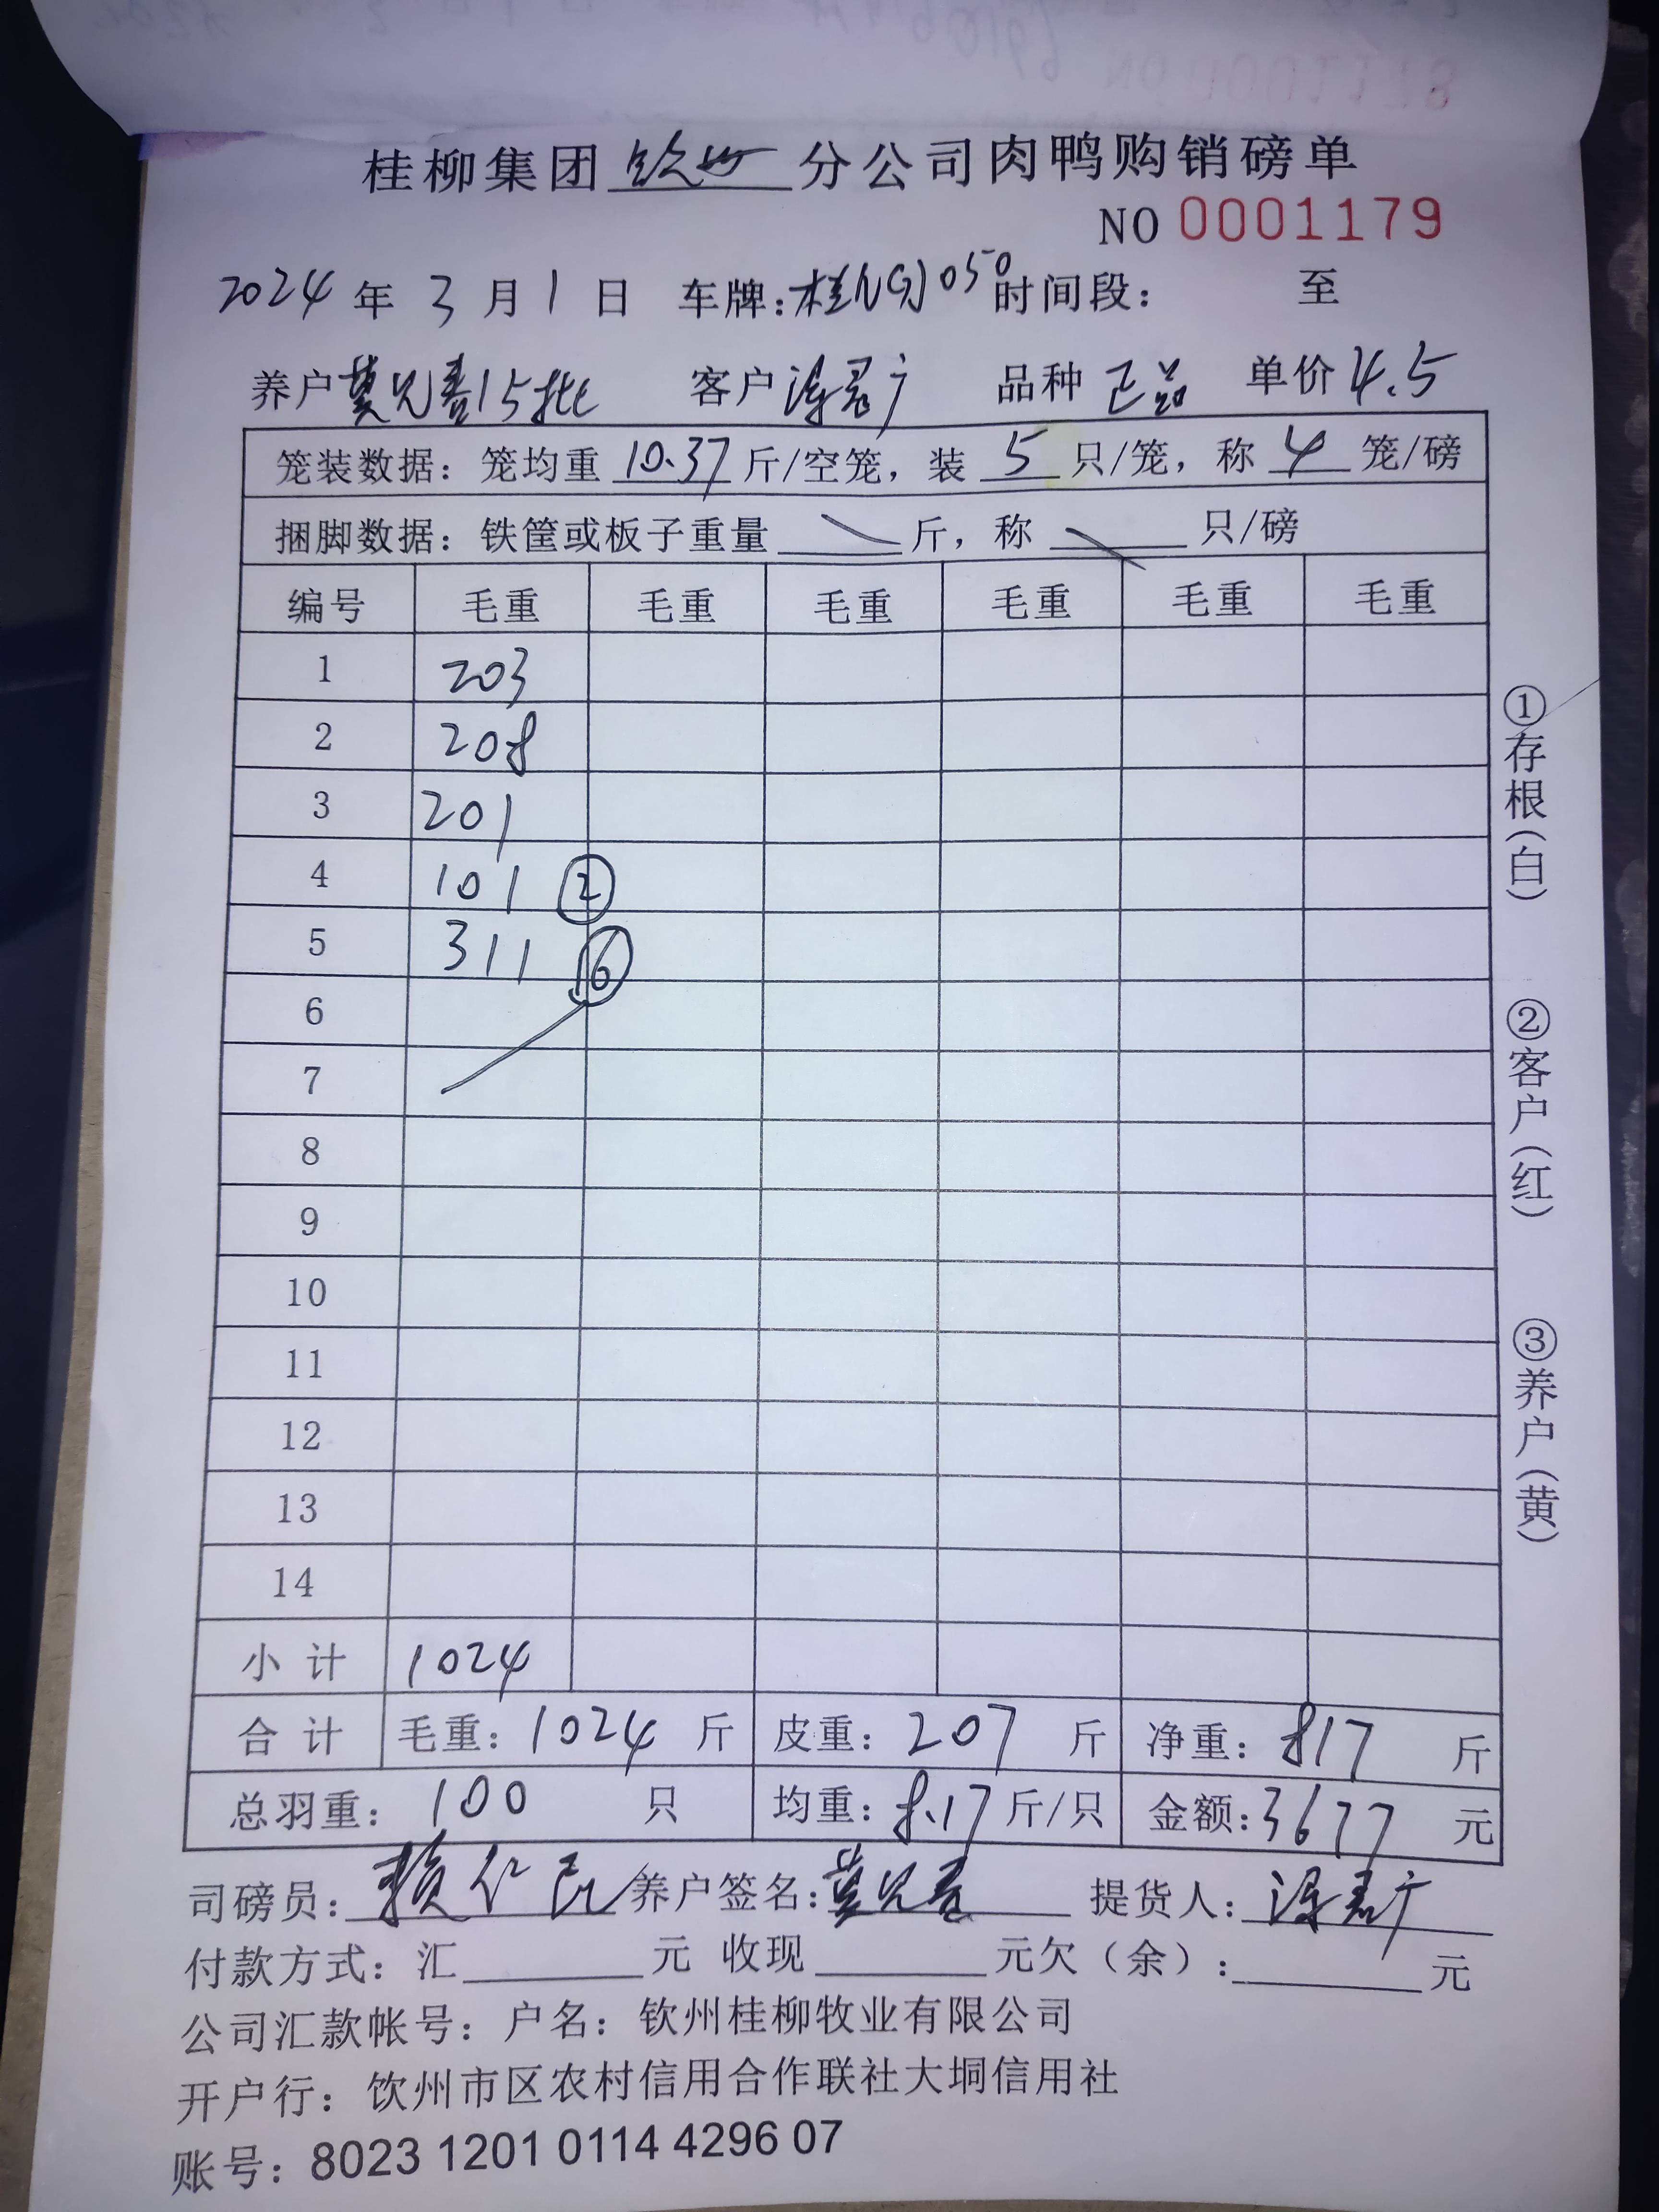 桂柳集团 钦州 分公司肉鸭购销磅单
NO 0001179
2024 年 3 月 1 日 车牌: 桂N 050 时间段: 至
养户 莫兄春15批 客户 广 品种 正品 单价 4.5
笼装数据: 笼均重 10.37 斤/空笼, 装 5 只/笼, 称 4 笼/磅
捆脚数据: 铁筐或板子重量 斤, 称 只/磅
编号 毛重 毛重 毛重 毛重 毛重 毛重
1 203
2 208
3 201
4 101 ②
5 311 ⑥
6
7
8
9
10
11
12
13
14
小计 1024
合计 毛重: 1024 斤 皮重: 207 斤 净重: 817 斤
总羽重: 100 只 均重: 8.17 斤/只 金额: 3677 元
司磅员: 赖仁 养户签名: 莫兄春 提货人: 广
付款方式: 汇 元 收现 元欠(余): 元
公司汇款帐号: 户名: 钦州桂柳牧业有限公司
开户行: 饮州市区农村信用合作联社大垌信用社
账号: 8023 1201 0114 4296 07
①存根(白)
②客户(红)
③养户(黄)